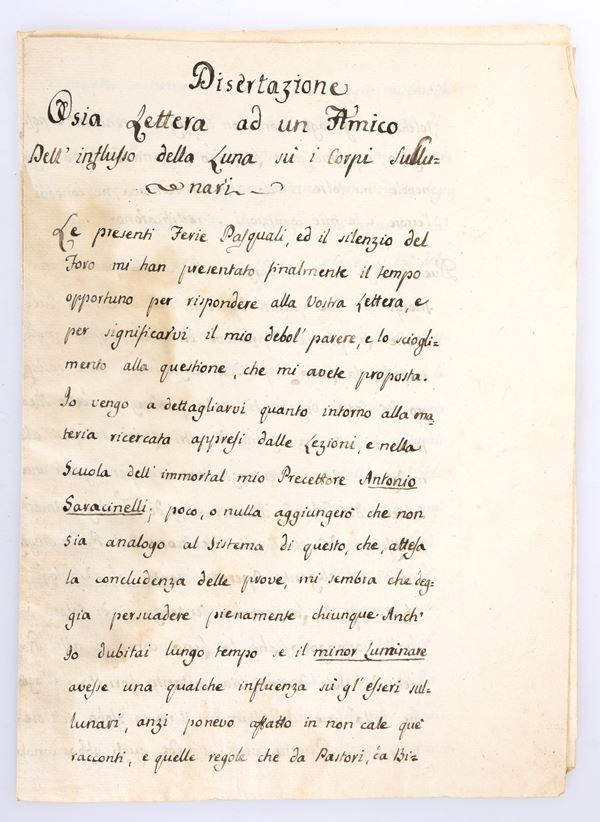 Disertazione
Osia Lettera ad un Amico
Dell' influsso della Luna sù i Corpi Sullu=
nari
Le presenti Ferie Pasquali, ed il silenzio del
Foro mi han presentato finalmente il tempo
opportuno per rispondere alla vostra Lettera, e
per significarvi il mio debol' parere, e lo sciogli=
mento alla questione, che mi avete proposta.
Io vengo a dettagliarvi quanto intorno alla ma
teria ricercata appresi dalle Lezioni, e nella
Scuola dell' immortal mio Precettore Antonio
Saracinelli; poco, o nulla aggiungerò che non
sia analogo al Sistema di questo, che, attesa
la concludenza delle prove, mi sembra che deg=
gia persuadere pienamente chiunque. Anch'
Io dubitai lungo tempo se il minor Luminare
avesse una qualche influenza sù gl' esseri sul=
lunari, anzi ponevo affatto in non cale què
racconti, e quelle regole che da Pastori, da Bi=